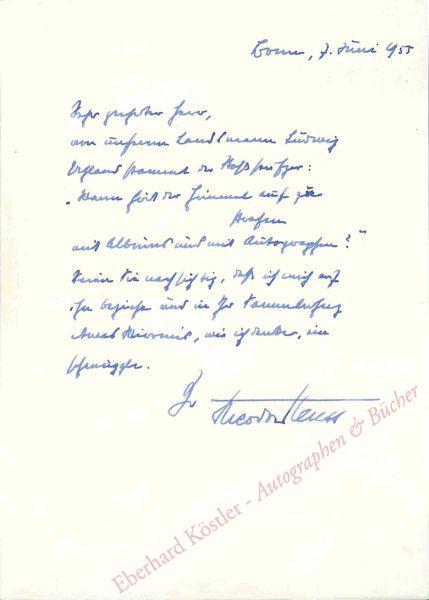 Bonn, 7. Juni 1955
Sehr geehrter Herr,
von unserem Landsmann Ludwig
Uhland stammt der Stoßseufzer:
„Wann hört der Himmel auf zu
strafen
mit Albums und mit Autographen?"
Seien Sie nachsichtig, daß ich mich auf
ihn beziehe und in Ihr
etwas, wie ich denke, ein
schmuggle.
Ihr
Theodor Heuss
Eberhard Köstler - Autographen & Bücher